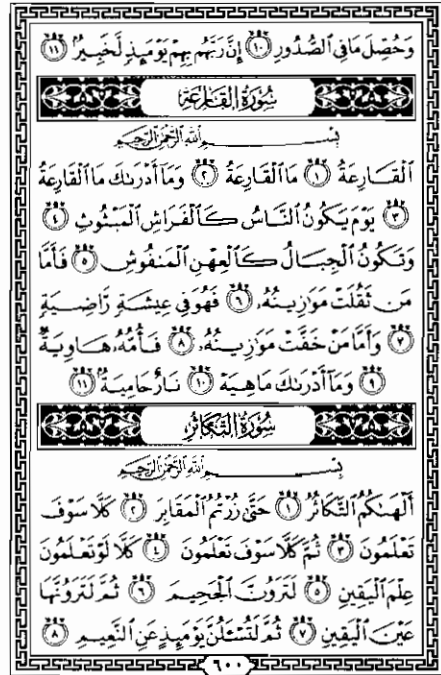 وَحُصِّلَ مَا فِي الصُّدُورِ ١٠ إِنَّ رَبَّهُم بِهِمْ يَوْمَئِذٍ لَّخَبِيرٌ ١١
سُورَةُ القَارِعَة
بِسْمِ اللَّهِ الرَّحْمَٰنِ الرَّحِيمِ
الْقَارِعَةُ ١ مَا الْقَارِعَةُ ٢ وَمَا أَدْرَىٰكَ مَا الْقَارِعَةُ
٣ يَوْمَ يَكُونُ النَّاسُ كَالْفَرَاشِ الْمَبْثُوثِ ٤
وَتَكُونُ الْجِبَالُ كَالْعِهْنِ الْمَنفُوشِ ٥ فَأَمَّا
مَن ثَقُلَتْ مَوَٰزِينُهُ ٦ فَهُوَ فِي عِيشَةٍ رَّاضِيَةٍ
٧ وَأَمَّا مَنْ خَفَّتْ مَوَٰزِينُهُ ٨ فَأُمُّهُ هَاوِيَةٌ
٩ وَمَا أَدْرَىٰكَ مَا هِيَهْ ١٠ نَارٌ حَامِيَةٌ ١١
سُورَةُ التَّكَاثُرِ
بِسْمِ اللَّهِ الرَّحْمَٰنِ الرَّحِيمِ
أَلْهَىٰكُمُ التَّكَاثُرُ ١ حَتَّىٰ زُرْتُمُ الْمَقَابِرَ ٢ كَلَّا سَوْفَ
تَعْلَمُونَ ٣ ثُمَّ كَلَّا سَوْفَ تَعْلَمُونَ ٤ كَلَّا لَوْ تَعْلَمُونَ
عِلْمَ الْيَقِينِ ٥ لَتَرَوُنَّ الْجَحِيمَ ٦ ثُمَّ لَتَرَوُنَّهَا
عَيْنَ الْيَقِينِ ٧ ثُمَّ لَتُسْـَٔلُنَّ يَوْمَئِذٍ عَنِ النَّعِيمِ ٨
٦٠٠